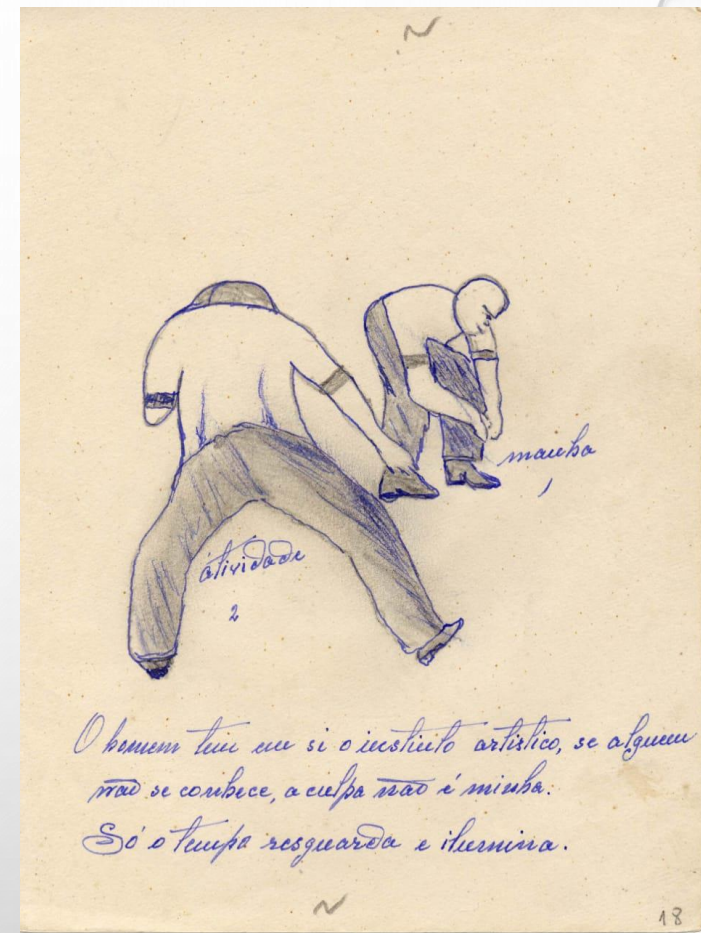 manha
1
átividade
2
O homem tem em si o instinto artistico, se alguem
não se conhece, a culpa não é minha.
Só o tempo resguarda e ilumina.
18